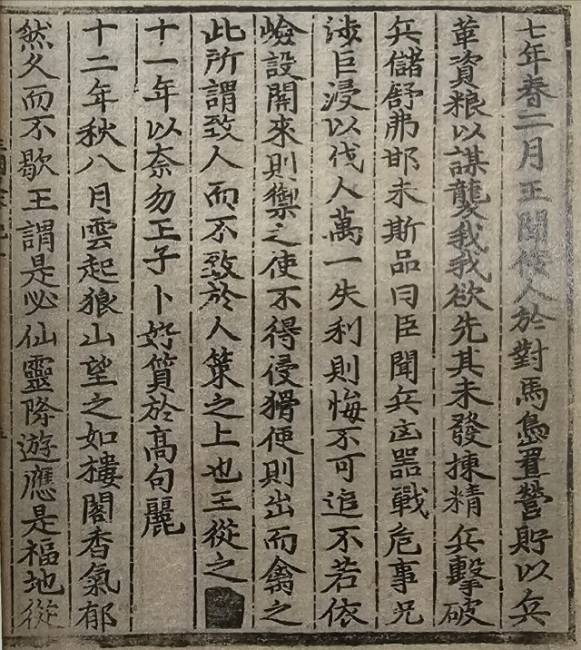 七年春二月王聞倭人於對馬島置營貯以兵
革資粮以謀襲我我欲先其未發揀精兵擊破
兵儲舒弗邯未斯品曰臣聞兵凶器戰危事况
涉巨浸以伐人萬一失利則悔不可追不若依
嶮設關來則禦之使不得侵猾便則出而禽之
此所謂致人而不致於人策之上也王從之
十一年以奈勿王子卜好質於高句麗
十二年秋八月雲起狼山望之如樓閣香氣郁
然久而不歇王謂是必仙靈降遊應是福地從